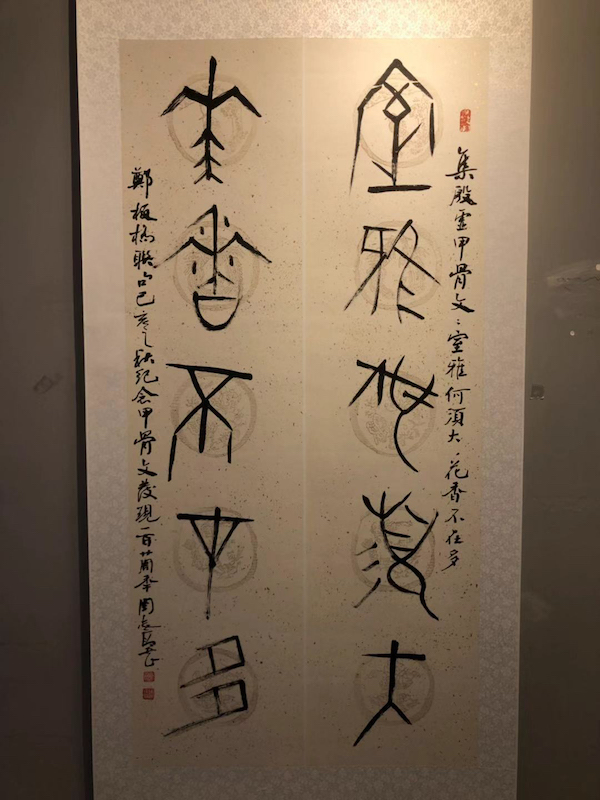 集殷虚甲骨文：室雅何須大、花香不在多
室雅何須大
花香不在多
鄭板橋聯句己亥之秋紀念甲骨文發現一百廿周年周志高